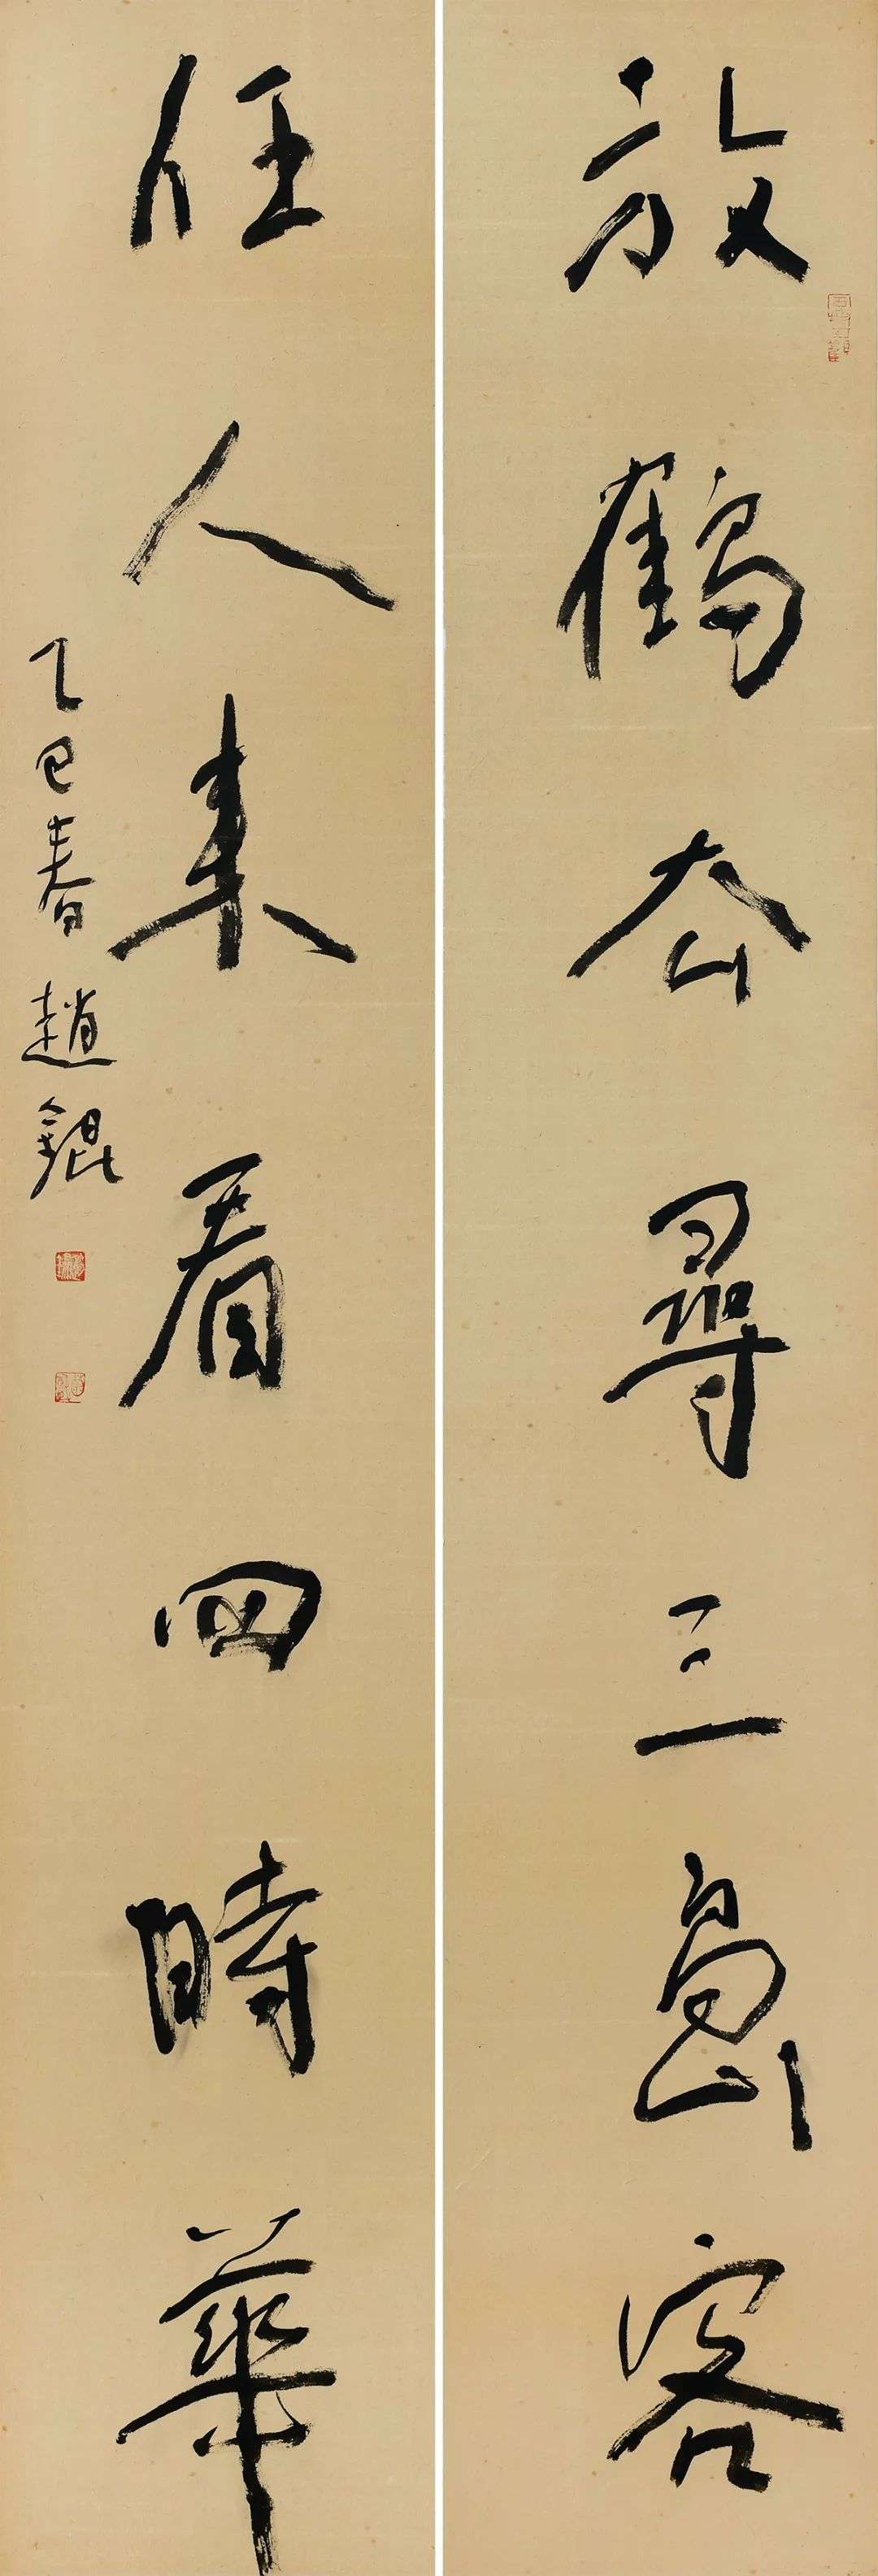 放鶴去尋三島客
任人來看四時華
乙巳春趙錕